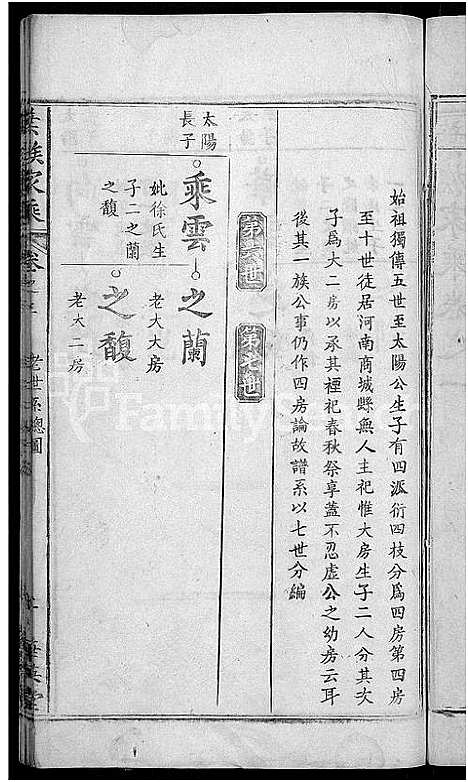 始祖獨傳五世至太陽公生子有四派衍四枝分爲四房第四房
至十世徒居河南商城縣無人主祀惟大房生子二人分其次
子爲大二房以承其禋祀春秋祭享蓋不忍虛公之幼房云耳
後其一族公事仍作四房論故譜系以七世分編
第六世 第七世
太陽長子
乘雲
妣徐氏生
子二之蘭
之馥
之蘭
老大大房
之馥
老大二房
族家乘
卷之
老世系總圖